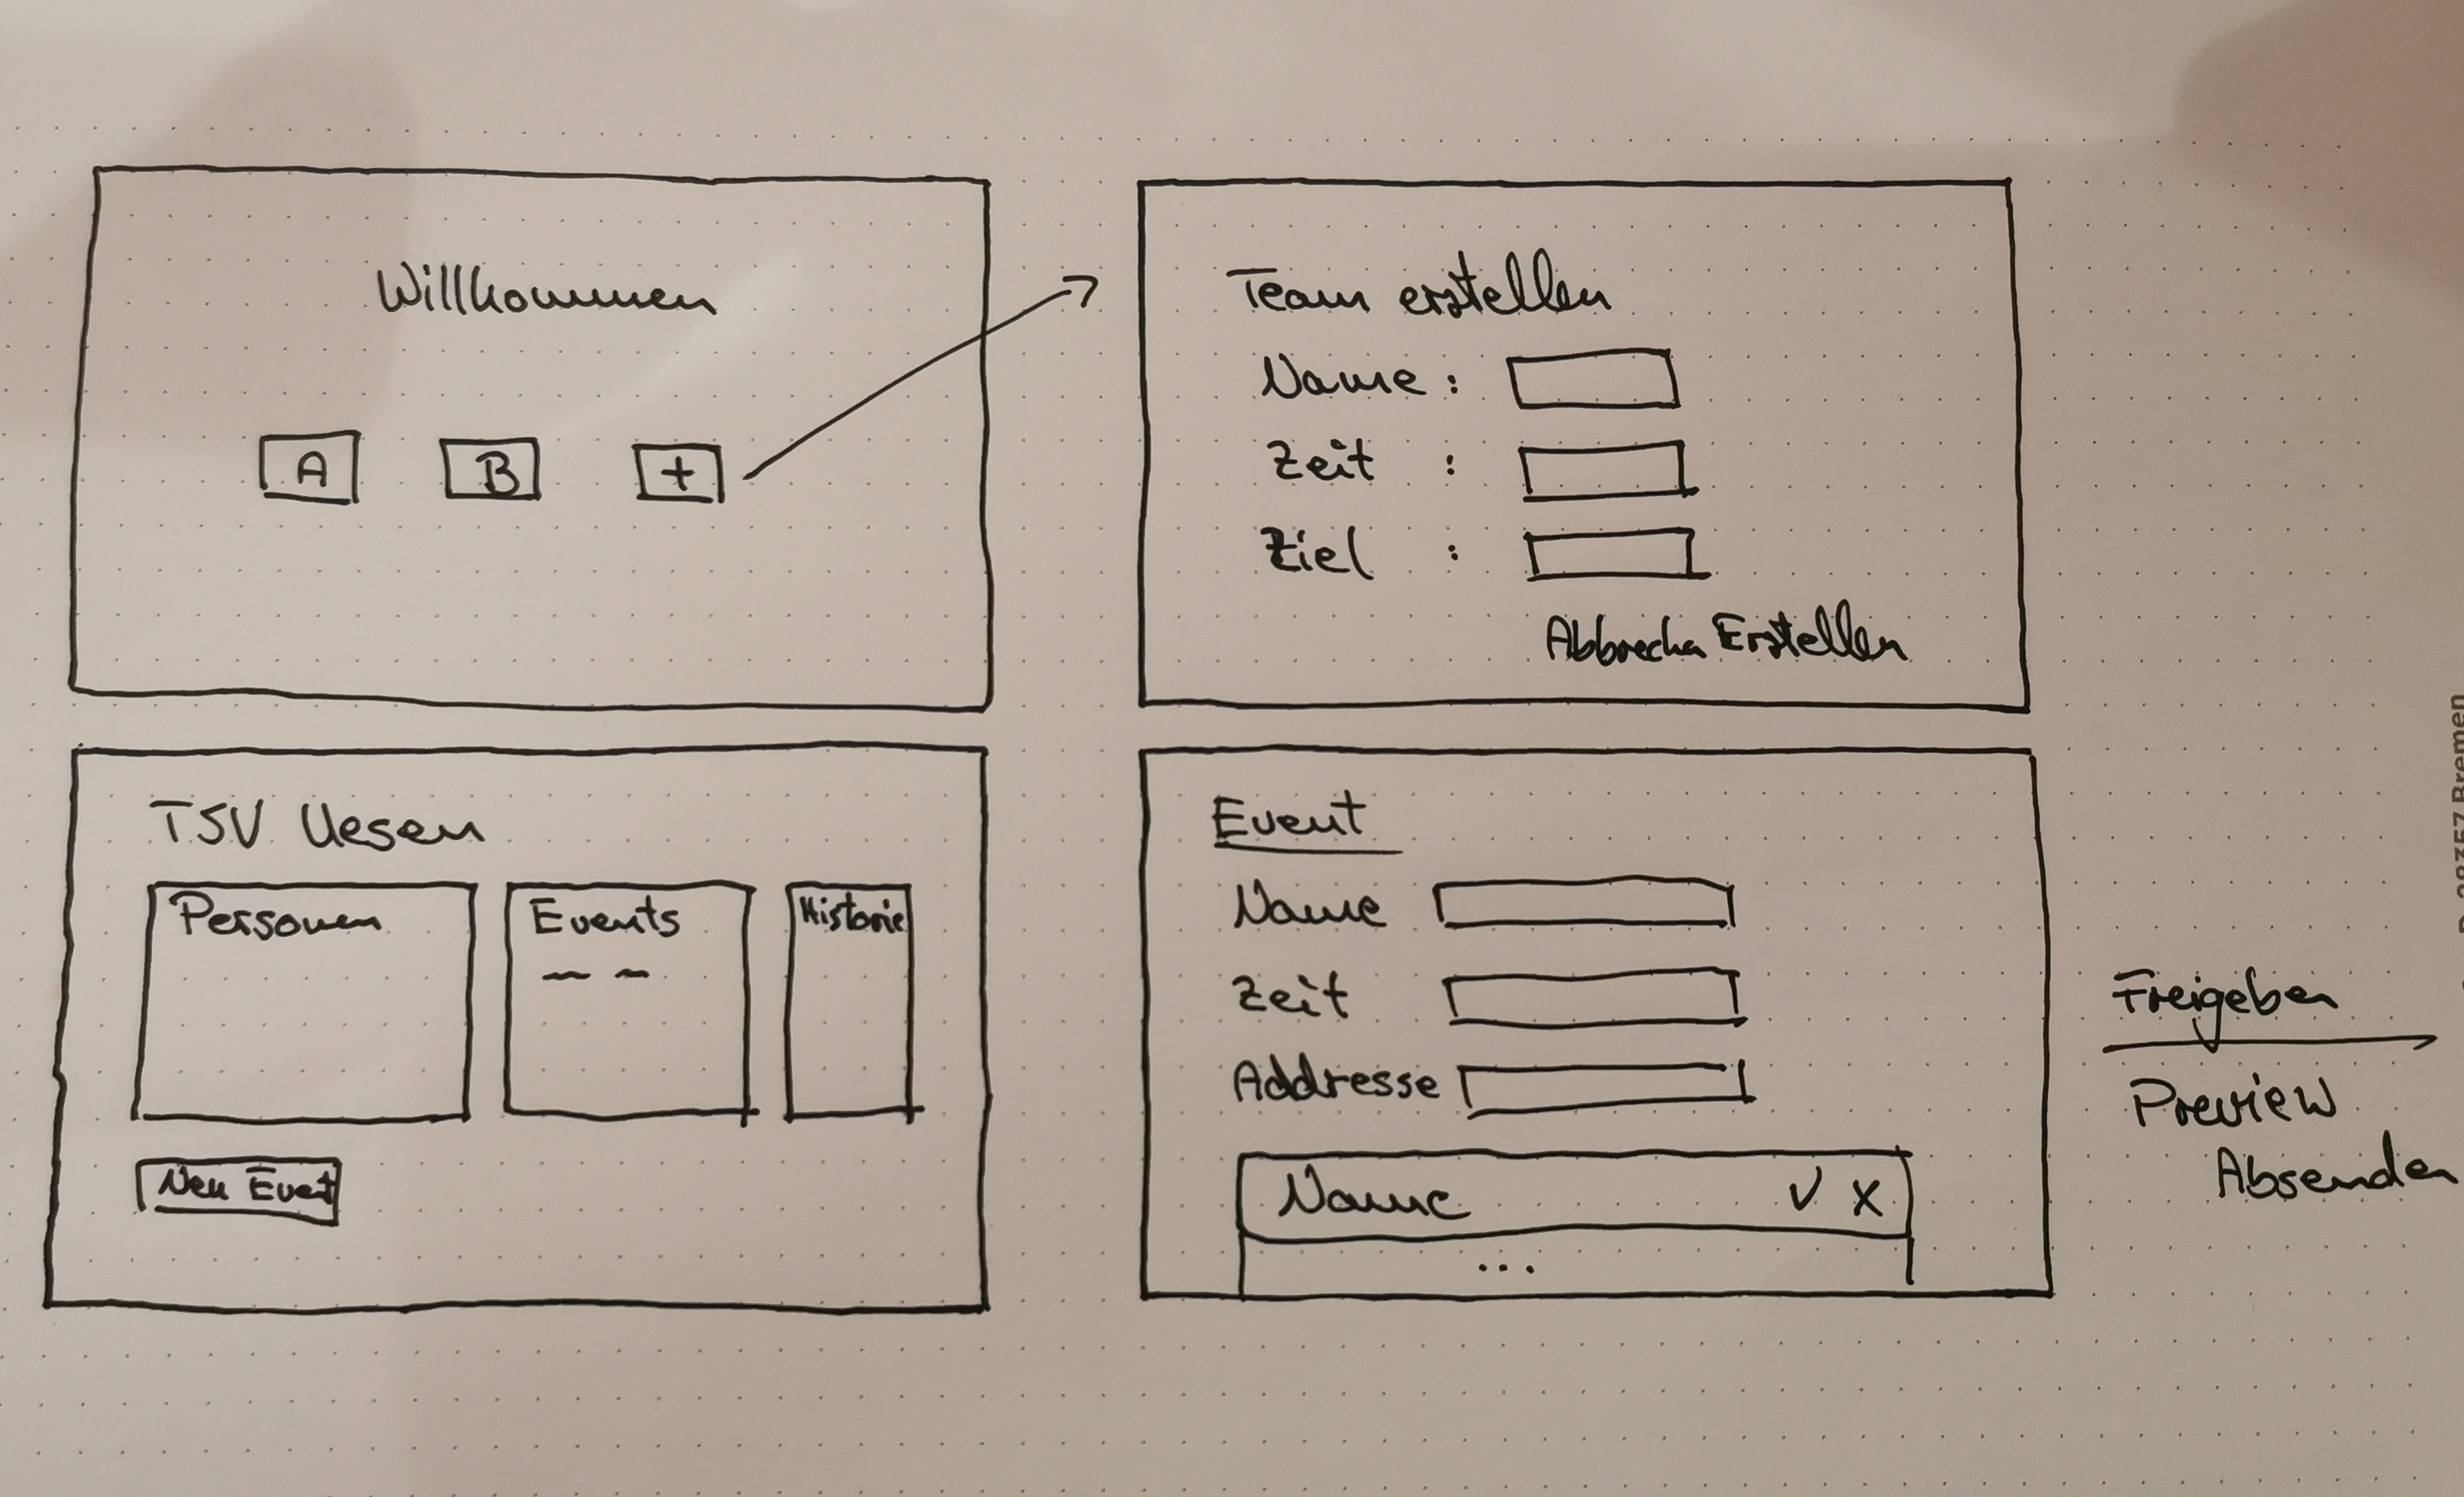 Willkommen
A B +
Team erstellen
Name :
Zeit :
Ziel :
Abbrechen Erstellen
TSV Uesen
Personen Events Historie
Neu Event
Event
Name
Zeit
Addresse
Name ✓ X
...
Freigeben
Preview
Absenden
28357 Bremen